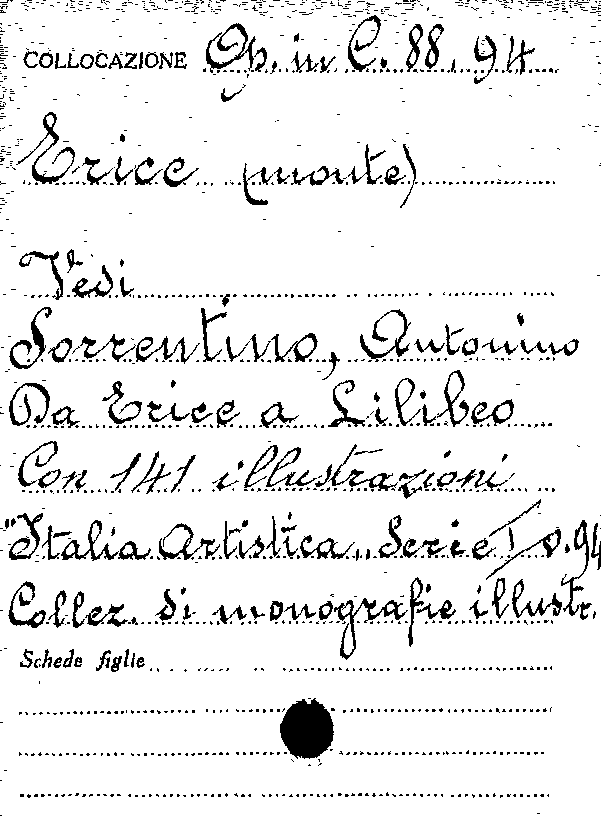 COLLOCAZIONE Op. in C. 88. 94
Erice (monte)
Vedi
Sorrentino, Antonino
Da Erice a Lilibeo
Con 141 illustrazioni
"Italia Artistica„ Serie I v. 94
Collez. di monografie illustr.
Schede figlie